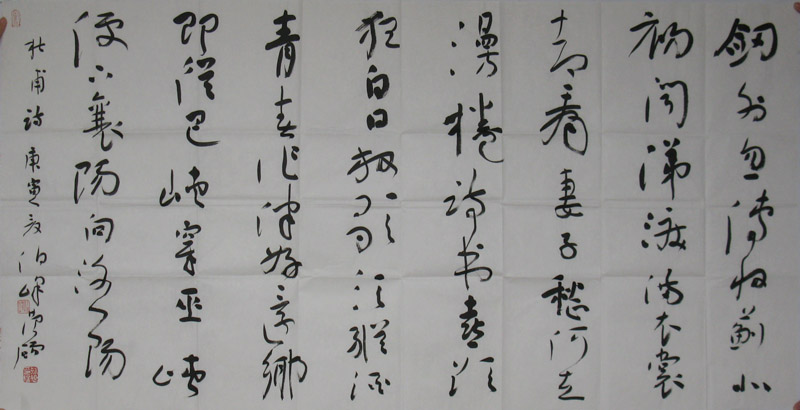 劍外忽傳收薊北
初聞涕淚滿衣裳
却看妻子愁何在
漫捲詩书喜欲
狂白日放歌須縱酒
青春作伴好還鄉
即從巴峽穿巫峽
便下襄陽向洛陽
杜甫詩 庚寅